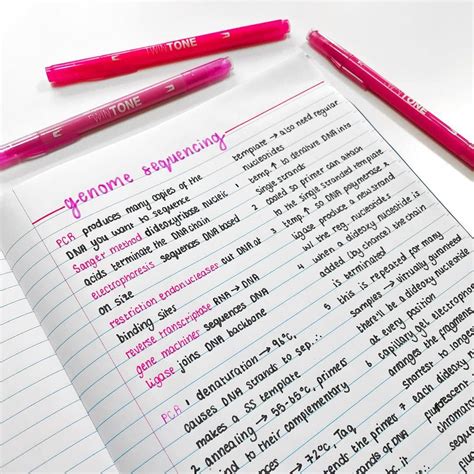 TWINTONE
TWINTONE
TWINTONE
genome sequencing
PCR produces many copies of the
DNA you want to sequence
Sanger method dideoxyribose nucleic
acids terminate the DNA chain
electrophoresis sequences DNA based
on size
restriction endonucleases cut DNA at
binding sites
reverse transcriptase RNA → DNA
gene machines sequences DNA
ligase joins DNA backbone
PCR 1 denaturation → 96°C,
causes DNA strands to sep...
makes a SS template
2 annealing → 55-65°C, primers
bind to their complementary
→ 72°C, Taq
extends the primer
strands of DNA
template → also need regular
nucleotides
1 temp. ↑ to denature DNA into
single strands
2 cooled so primer can attach
to the single stranded template
3 temp. ↑ so DNA polymerase &
ligase produce a new strand
w/ the reg. nucleotides
4 when a dideoxy nucleotide is
added (by chance) the chain
is terminated
5 this is repeated for many
samples → virtually guaranteed
there'll be a dideoxy nucleotide
at every position
6 capillary gel
arranges the
shortest to
7 each dideoxy